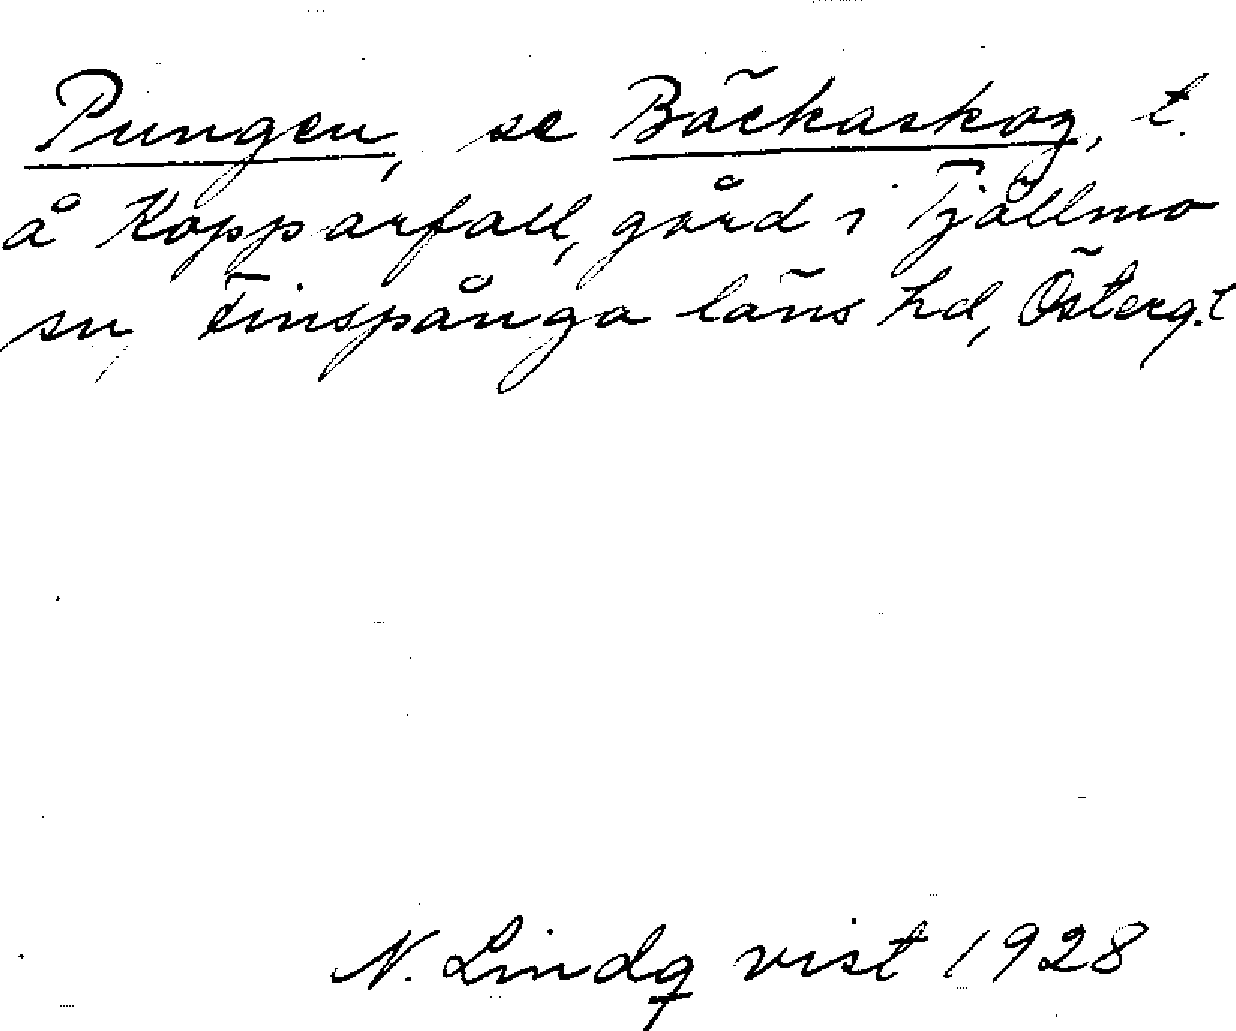 Pungen, se Bäckaskog, t.
å Kopparfall, gård i Tjällmo
sn, Finspånga läns hd, Östergt
N. Lindqvist 1928